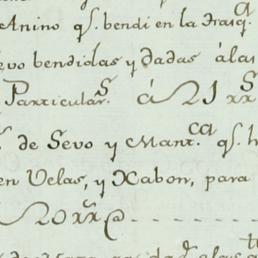 Anino qs. bendi en la frasqa
evo bendidas y dadas á las
Particulars. á 21 xxs
de Sevo y Mantca qs. h
en Velas, y Xabon, para
20 xxs @